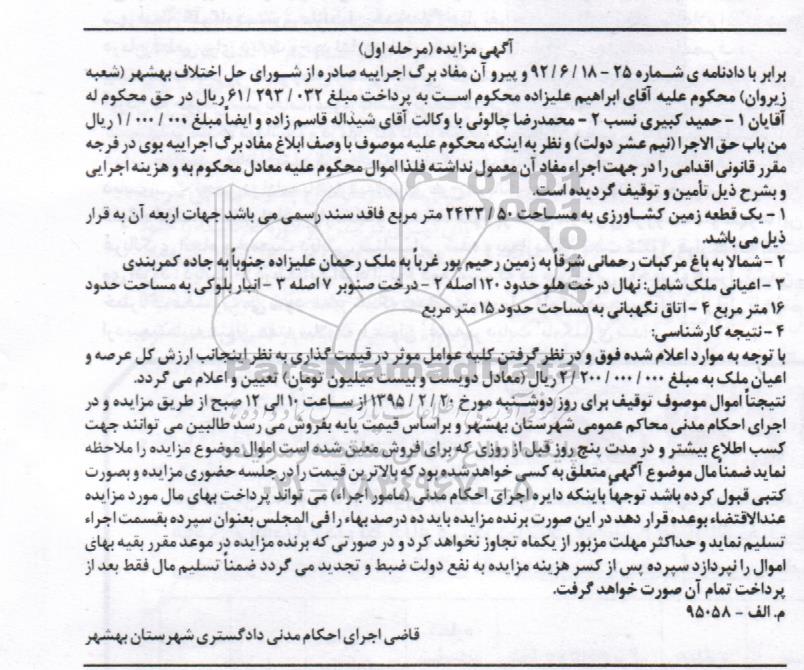 آگهی مزایده (مرحله اول)
برابر با دادنامه ی شماره ۲۵ - ۱۸ / ۶ / ۹۲ و پیرو آن مفاد برگ اجراییه صادره از شورای حل اختلاف بهشهر (شعبه
زیروان) محکوم علیه آقای ابراهیم علیزاده محکوم است به پرداخت مبلغ ۰۳۲ / ۲۹۳ / ۶۱ ریال در حق محکوم له
آقایان ۱ - حمید کبیری نسب ۲ - محمدرضا چالوئی با وکالت آقای شیداله قاسم زاده و ایضاً مبلغ ۰۰۰ / ۰۰۰ / ۱ ریال
من باب حق الاجرا (نیم عشر دولت) و نظر به اینکه محکوم علیه موصوف با وصف ابلاغ مفاد برگ اجراییه بوی در فرجه
مقرر قانونی اقدامی را در جهت اجراء مفاد آن معمول نداشته فلذا اموال محکوم علیه معادل محکوم به و هزینه اجرایی
و بشرح ذیل تأمین و توقیف گردیده است.
۱ - یک قطعه زمین کشاورزی به مساحت ۵۰ / ۲۴۳۳ متر مربع فاقد سند رسمی می باشد جهات اربعه آن به قرار
ذیل می باشد.
۲ - شمالا به باغ مرکبات رحمانی شرقاً به زمین رحیم پور غرباً به ملک رحمان علیزاده جنوباً به جاده کمربندی
۳ - اعیانی ملک شامل: نهال درخت هلو حدود ۱۲۰ اصله ۲ - درخت صنوبر ۷ اصله ۳ - انبار بلوکی به مساحت حدود
۱۶ متر مربع ۴ - اتاق نگهبانی به مساحت حدود ۱۵ متر مربع
۴ - نتیجه کارشناسی:
با توجه به موارد اعلام شده فوق و در نظر گرفتن کلیه عوامل موثر در قیمت گذاری به نظر اینجانب ارزش کل عرصه و
اعیان ملک به مبلغ ۰۰۰ / ۰۰۰ / ۲۰۰ / ۲ ریال (معادل دویست و بیست میلیون تومان) تعیین و اعلام می گردد.
نتیجتاً اموال موصوف توقیف برای روز دوشنبه مورخ ۲۰ / ۲ / ۱۳۹۵ از ساعت ۱۰ الی ۱۲ صبح از طریق مزایده و در
اجرای احکام مدنی محاکم عمومی شهرستان بهشهر و براساس قیمت پایه بفروش می رسد طالبین می توانند جهت
کسب اطلاع بیشتر و در مدت پنج روز قبل از روزی که برای فروش معین شده است اموال موضوع مزایده را ملاحظه
نماید ضمناً مال موضوع آگهی متعلق به کسی خواهد شده بود که بالاترین قیمت را در جلسه حضوری مزایده و بصورت
کتبی قبول کرده باشد توجهاً باینکه دایره اجرای احکام مدنی (مامور اجراء) می تواند پرداخت بهای مال مورد مزایده
عندالاقتضاء بوعده قرار دهد در این صورت برنده مزایده باید ده درصد بهاء را فی المجلس بعنوان سپرده بقسمت اجراء
تسلیم نماید و حداکثر مهلت مزبور از یکماه تجاوز نخواهد کرد و در صورتی که برنده مزایده در موعد مقرر بقیه بهای
اموال را نپردازد سپرده پس از کسر هزینه مزایده به نفع دولت ضبط و تجدید می گردد ضمناً تسلیم مال فقط بعد از
پرداخت تمام آن صورت خواهد گرفت.
م. الف - ۹۵۰۵۸
قاضی اجرای احکام مدنی دادگستری شهرستان بهشهر
ParsNamadData